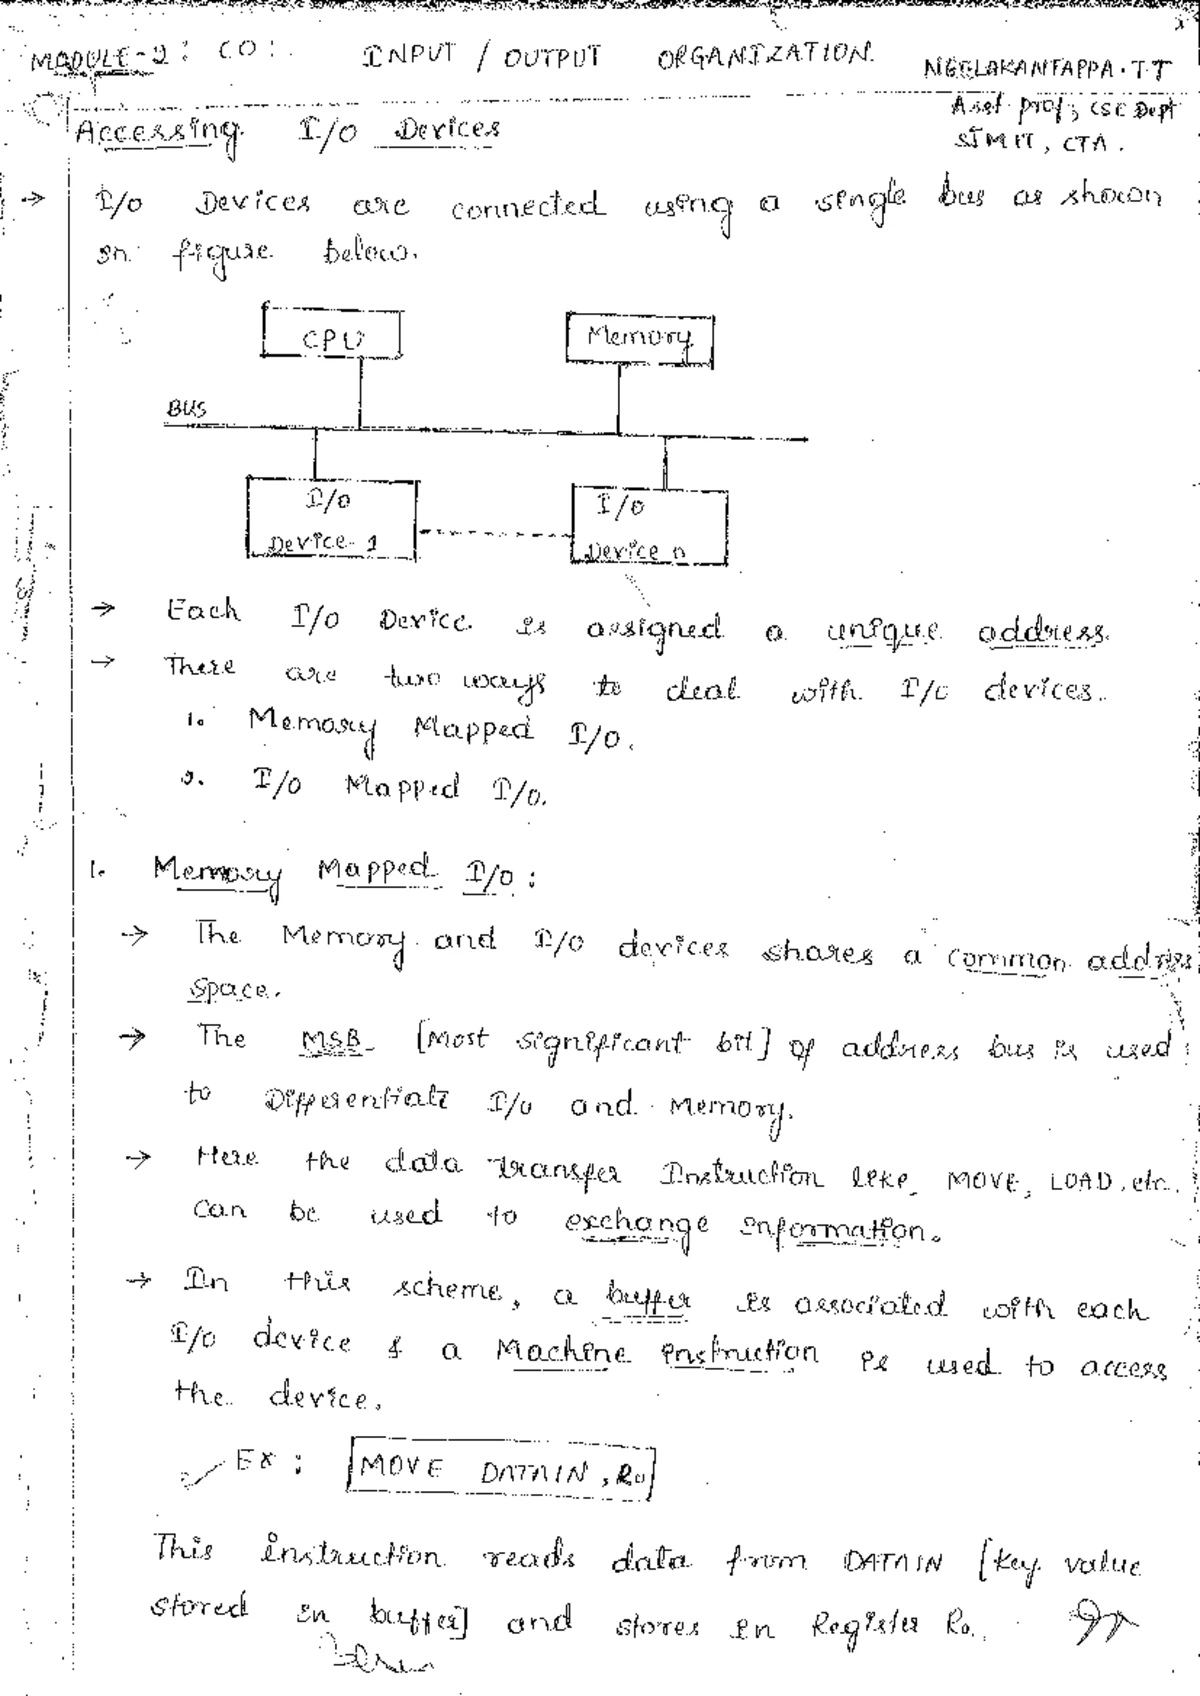 MODULE-2: CO: INPUT / OUTPUT ORGANIZATION.
NEELAKANTAPPA.T.T
Asst prof; CSE Dept
SJMIT, CTA.
Accessing I/O Devices
→ I/O Devices are connected using a single bus as shown
in figure below.
CPU Memory
BUS
I/O I/O
Device-1 Device n
→ Each I/O Device is assigned a unique address.
→ There are two ways to deal with I/O devices.
1. Memory Mapped I/O.
2. I/O Mapped I/O.
1. Memory Mapped I/O:
→ The Memory and I/O devices shares a common address
space.
→ The MSB [Most significant bit] of address bus is used
to Differentiate I/O and Memory.
→ Here the data transfer Instruction like MOVE, LOAD, etc.
can be used to exchange information.
→ In this scheme, a buffer is associated with each
I/O device & a Machine instruction is used to access
the device.
Ex: MOVE DATAIN, R0
This instruction reads data from DATAIN [key value
stored in buffer] and stores in Register R0.